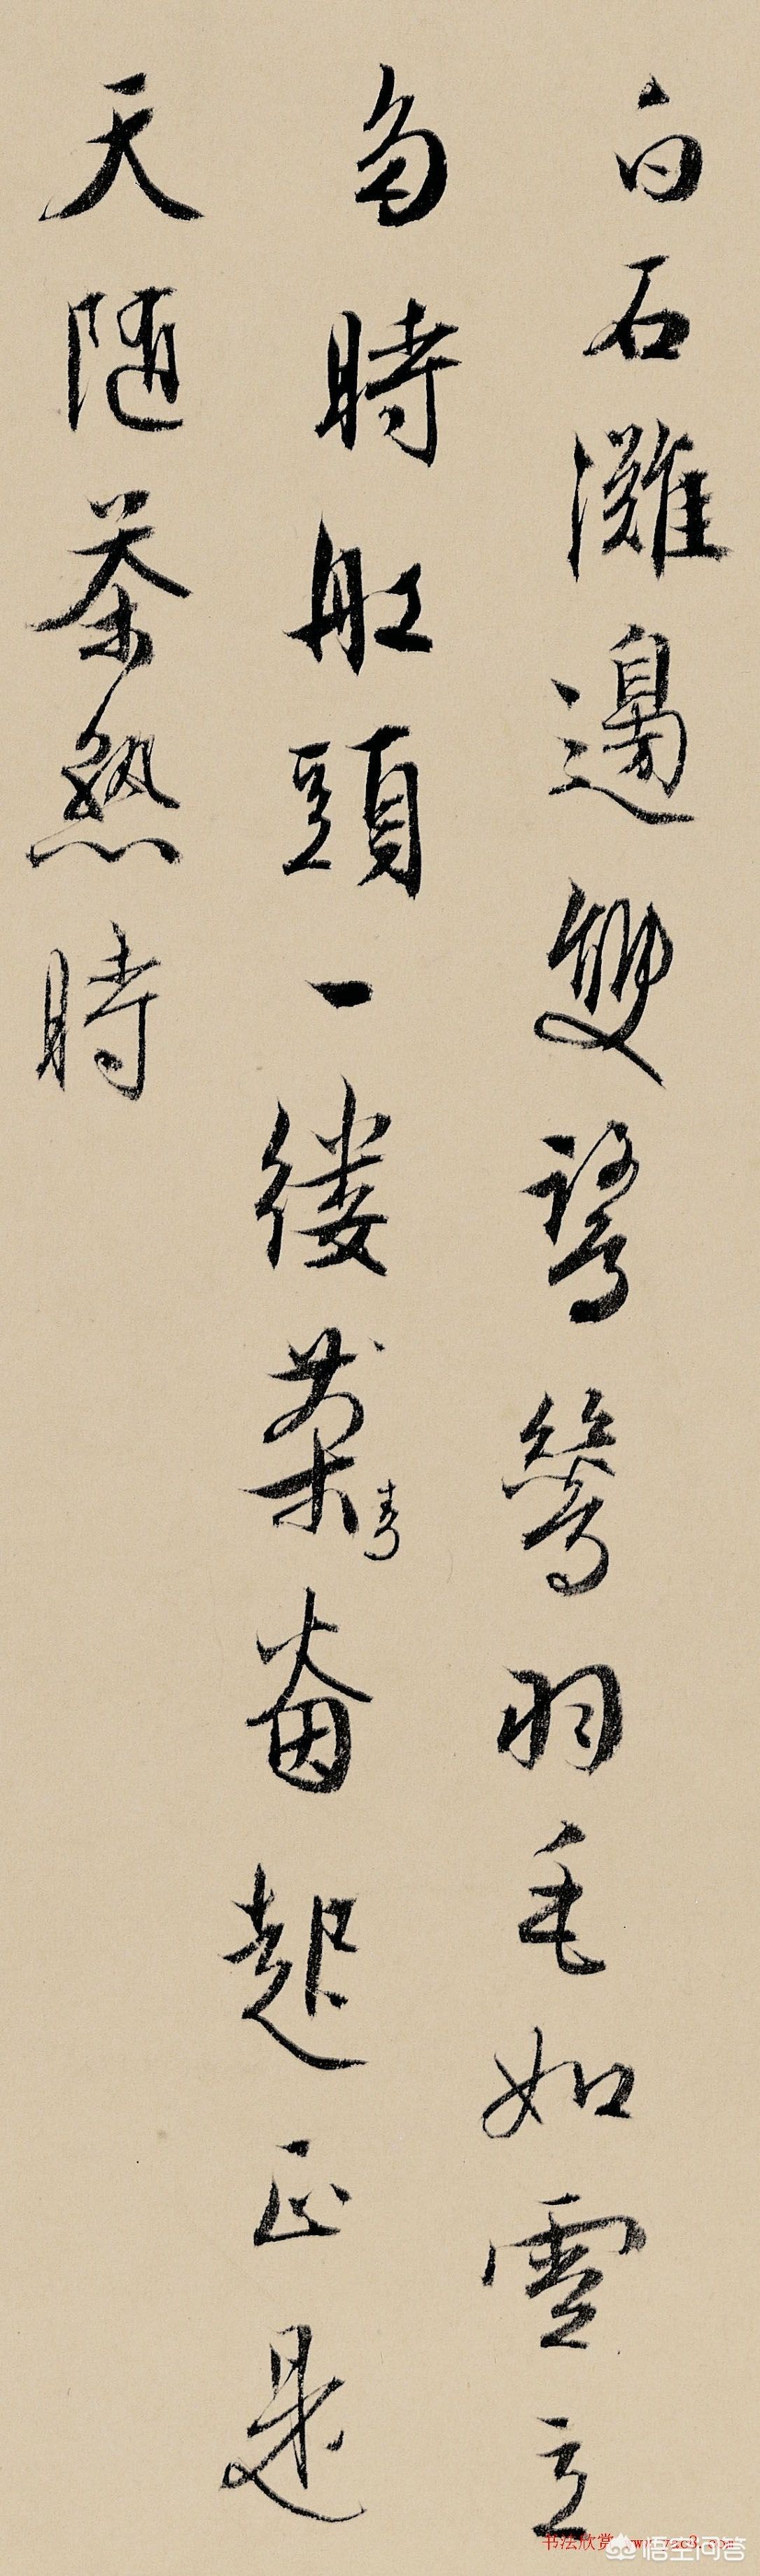 白石灘邊雙鷺鷥羽毛如雪立
多時舡頭一縷青烟起正是
天隨茶熟時
书法欣赏 www.yac8.com
悟空问答